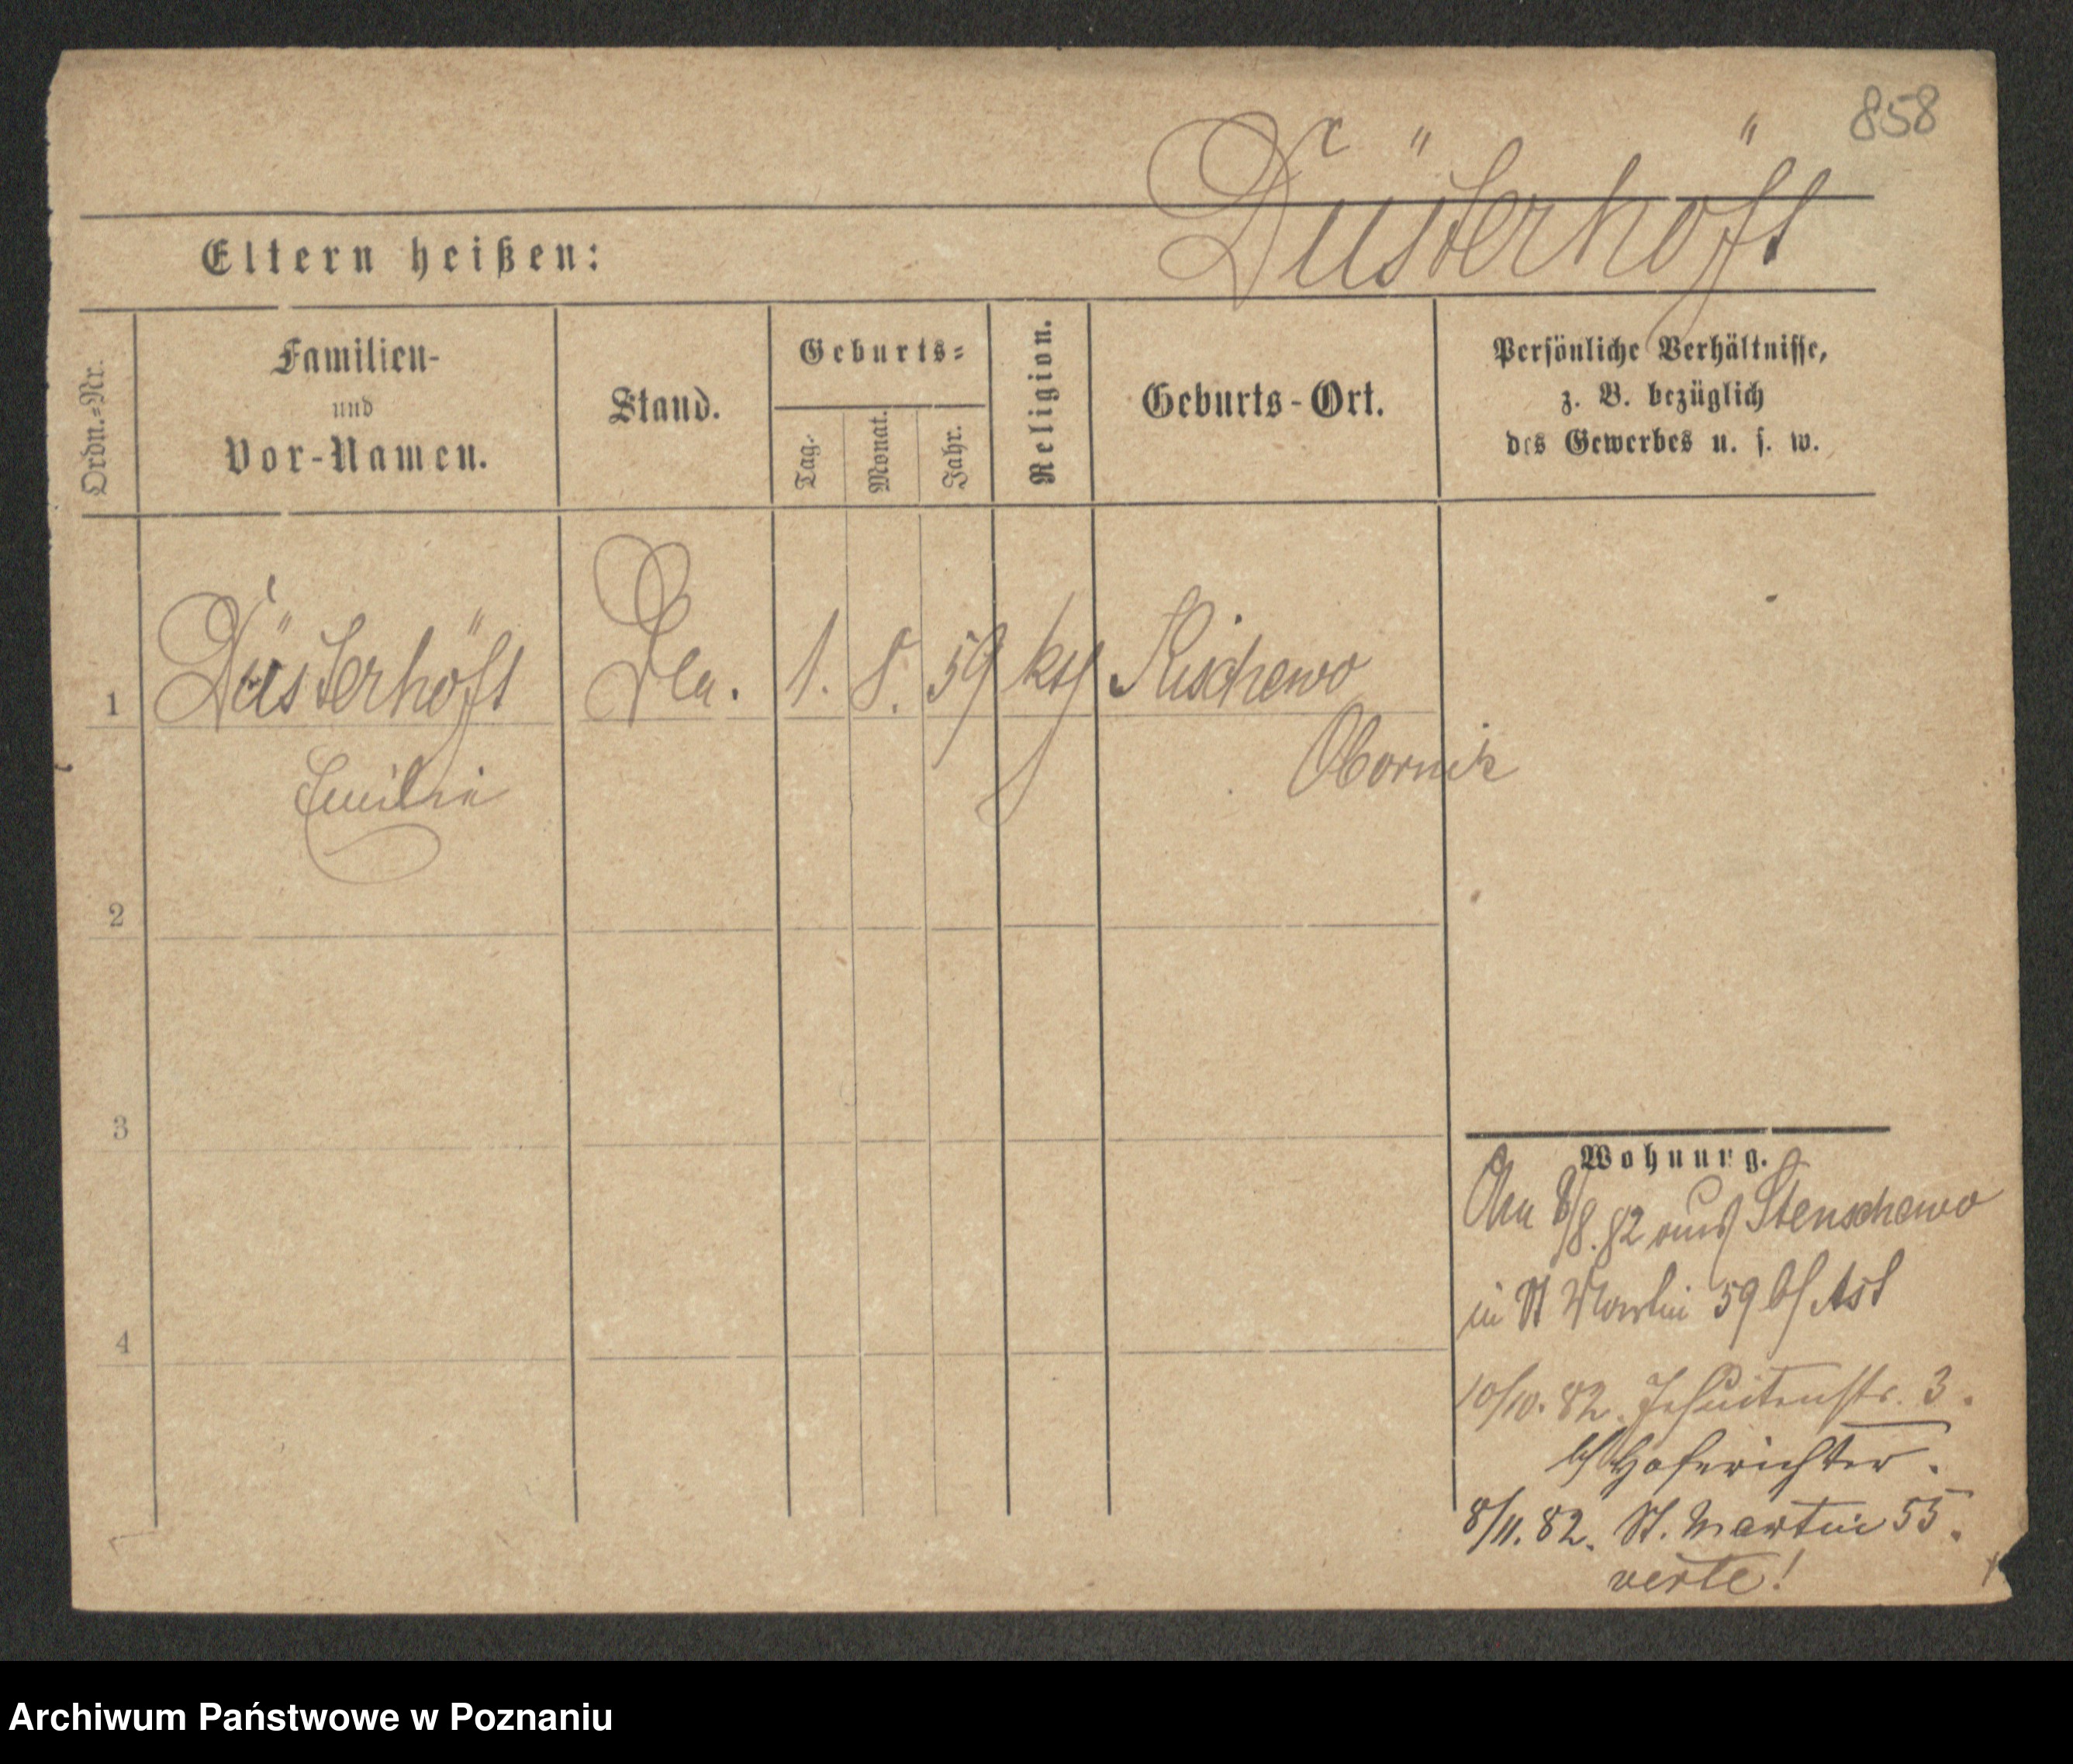 858
Düsterhöft
Eltern heißen:
Ordn.=Nr.
Familien-
und
Vor-Namen.
Stand.
Geburts=
Tag.
Monat.
Jahr.
Religion.
Geburts-Ort.
Persönliche Verhältnisse,
z. B. bezüglich
des Gewerbes u. s. w.
1 Düsterhöft 1. 8. 59 Kischewo
Obornik
2
3
4
Wohnung.
8/8. 82 aus Stenschewo
in St Martin 59 b/ Ast
10/10. 82. Jesuitenstr. 3.
b/ Hoferichter.
8/11. 82. St. Martin 55.
verte!
Archiwum Państwowe w Poznaniu